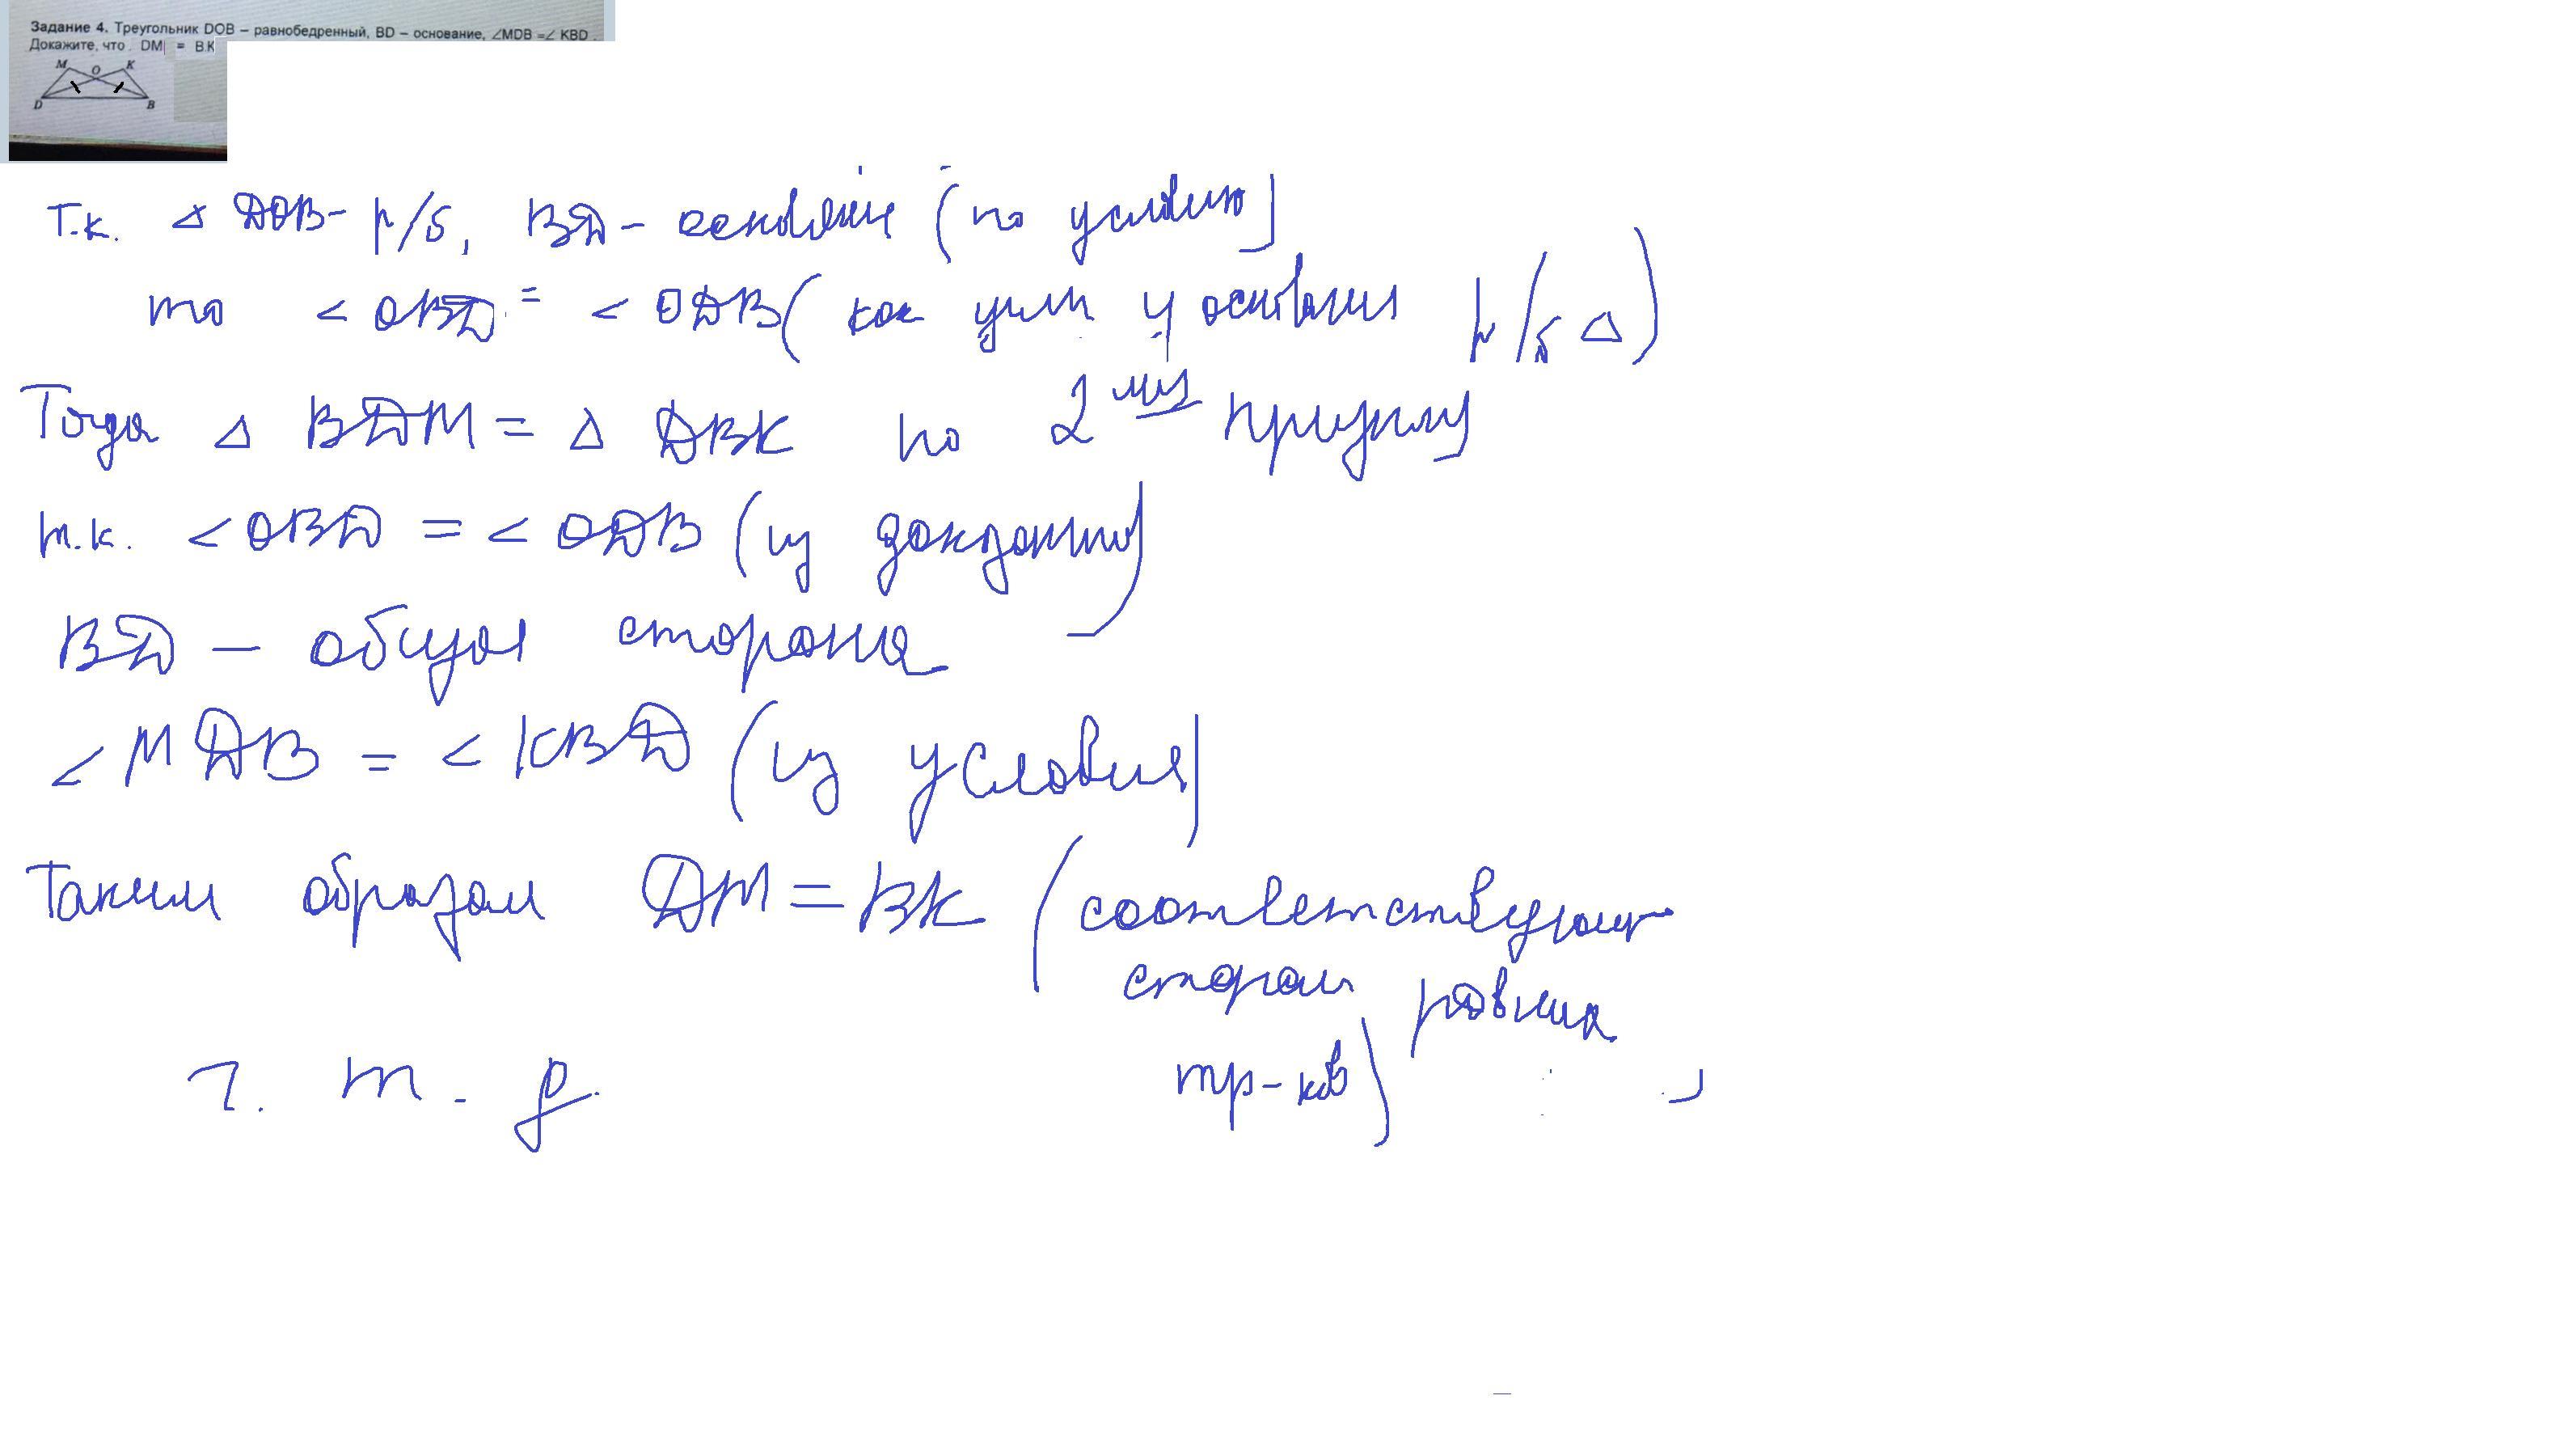 Задание 4. Треугольник DOB – равнобедренный, BD – основание, ∠MDB =∠ KBD .
Докажите, что . DM = BK
M O K
D B
Т.к. △ DOB - р/б, BD - основание (по условию)
то ∠ OBD = ∠ ODB ( как углы у основания р/б △ )
Тогда △ BDM = △ DBK по 2 му признаку
т.к. ∠ OBD = ∠ ODB (из доказанного)
BD – общая сторона
∠ MDB = ∠ KBD (из условия)
Таким образом DM = BK (соответствующие
сторон равных
тр-ков)
ч. т. д.